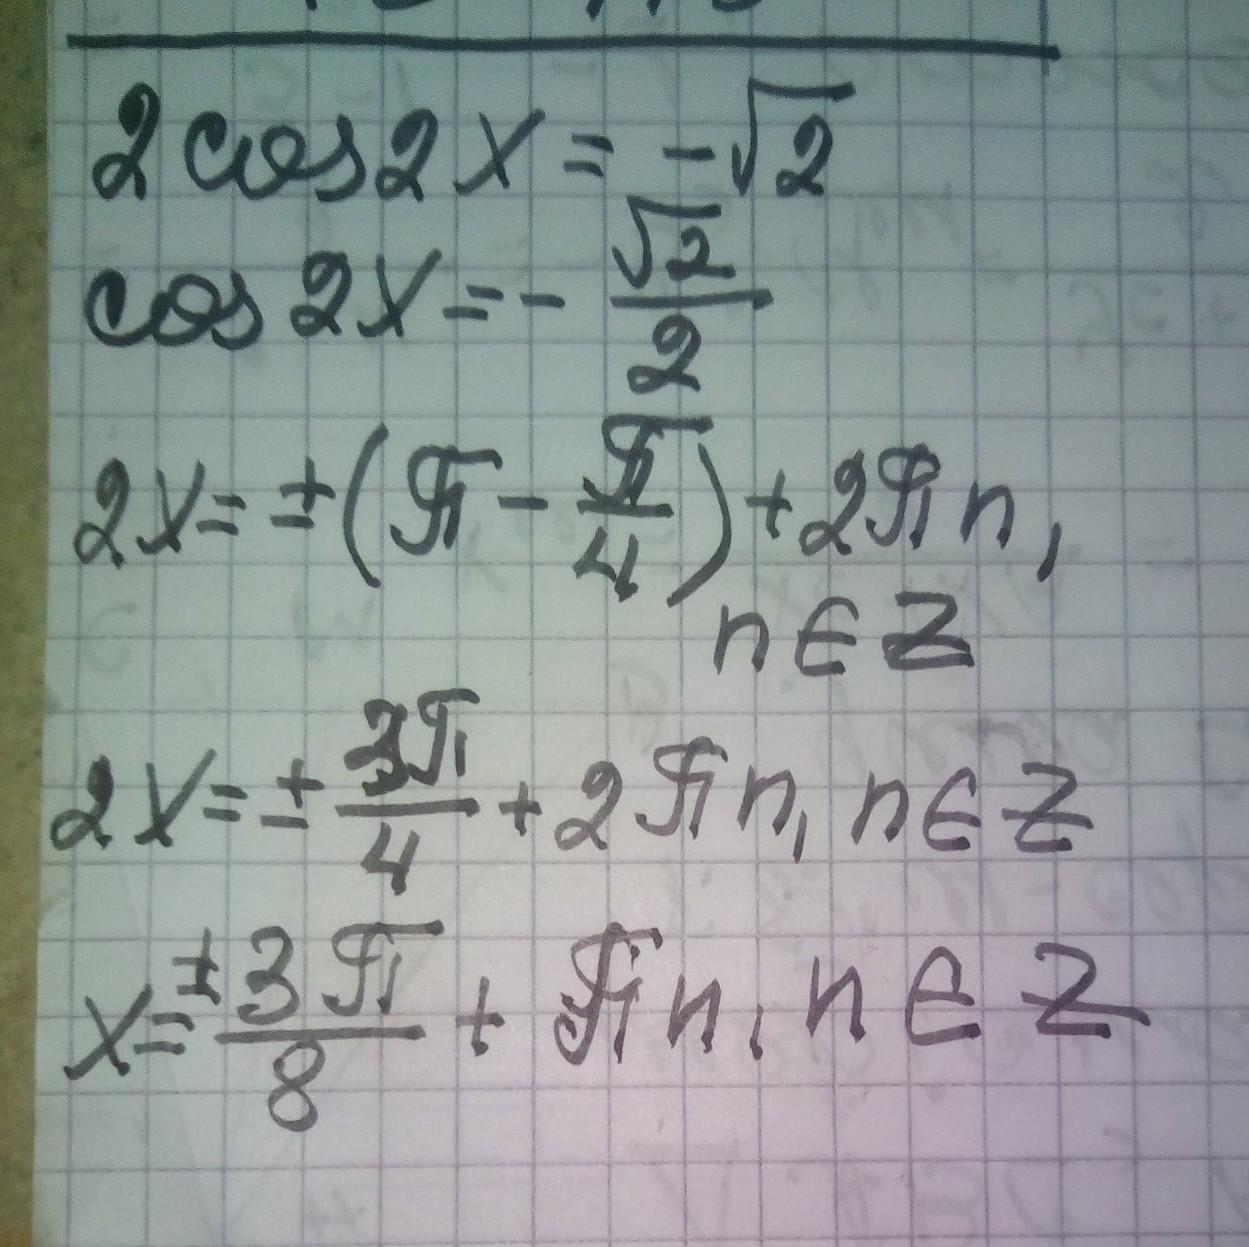 2 cos 2x = -√2
cos 2x = - √2/2
2x = ±(π - π/4) + 2πn,
n ∈ Z
2x = ± 3π/4 + 2πn, n ∈ Z
x = ± 3π/8 + πn, n ∈ Z